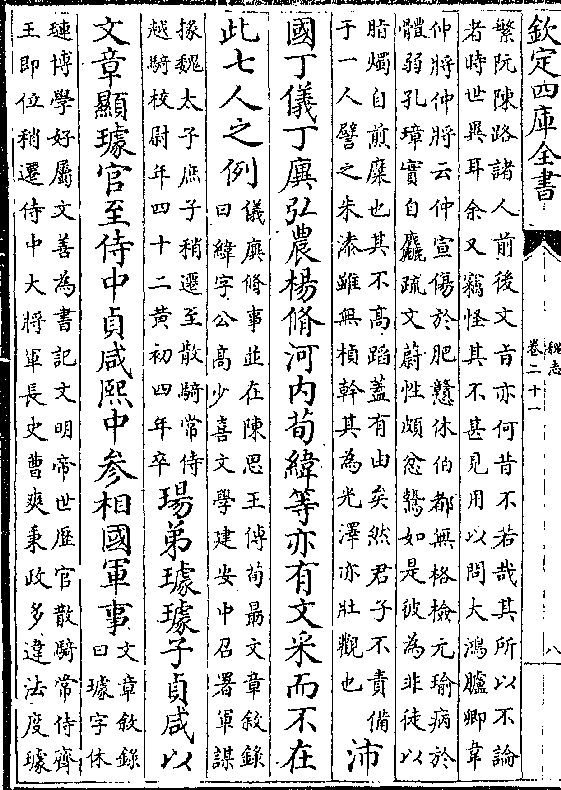 欽定四庫全書
魏志
卷二十一
八
繁阮陳路諸人前後文旨亦何昔不若哉其所以不論
者時世異耳余又竊怪其不甚見用以問大鴻臚卿韋
仲將仲將云仲宣傷於肥戇休伯都無格檢元瑜病於
體弱孔璋實自麤疏文蔚性頗忿鷙如是彼為非徒以
脂燭自煎糜也其不高蹈蓋有由矣然君子不責備
于一人譬之朱漆雖無楨幹其為光澤亦壯觀也
沛
國丁儀丁廙弘農楊脩河内荀緯等亦有文采而不在
此七人之例
儀廙脩事並在陳思王傅荀勗文章敘錄
曰緯字公高少喜文學建安中召署軍謀
掾魏太子庶子稍遷至散騎常侍
越騎校尉年四十二黃初四年卒
瑒弟璩璩子貞咸以
文章顯璩官至侍中貞咸熙中參相國軍事
文章敘錄
曰璩字休
璉博學好屬文善為書記文明帝世歷官散騎常侍齊
王即位稍遷侍中大將軍長史曹爽秉政多違法度璩